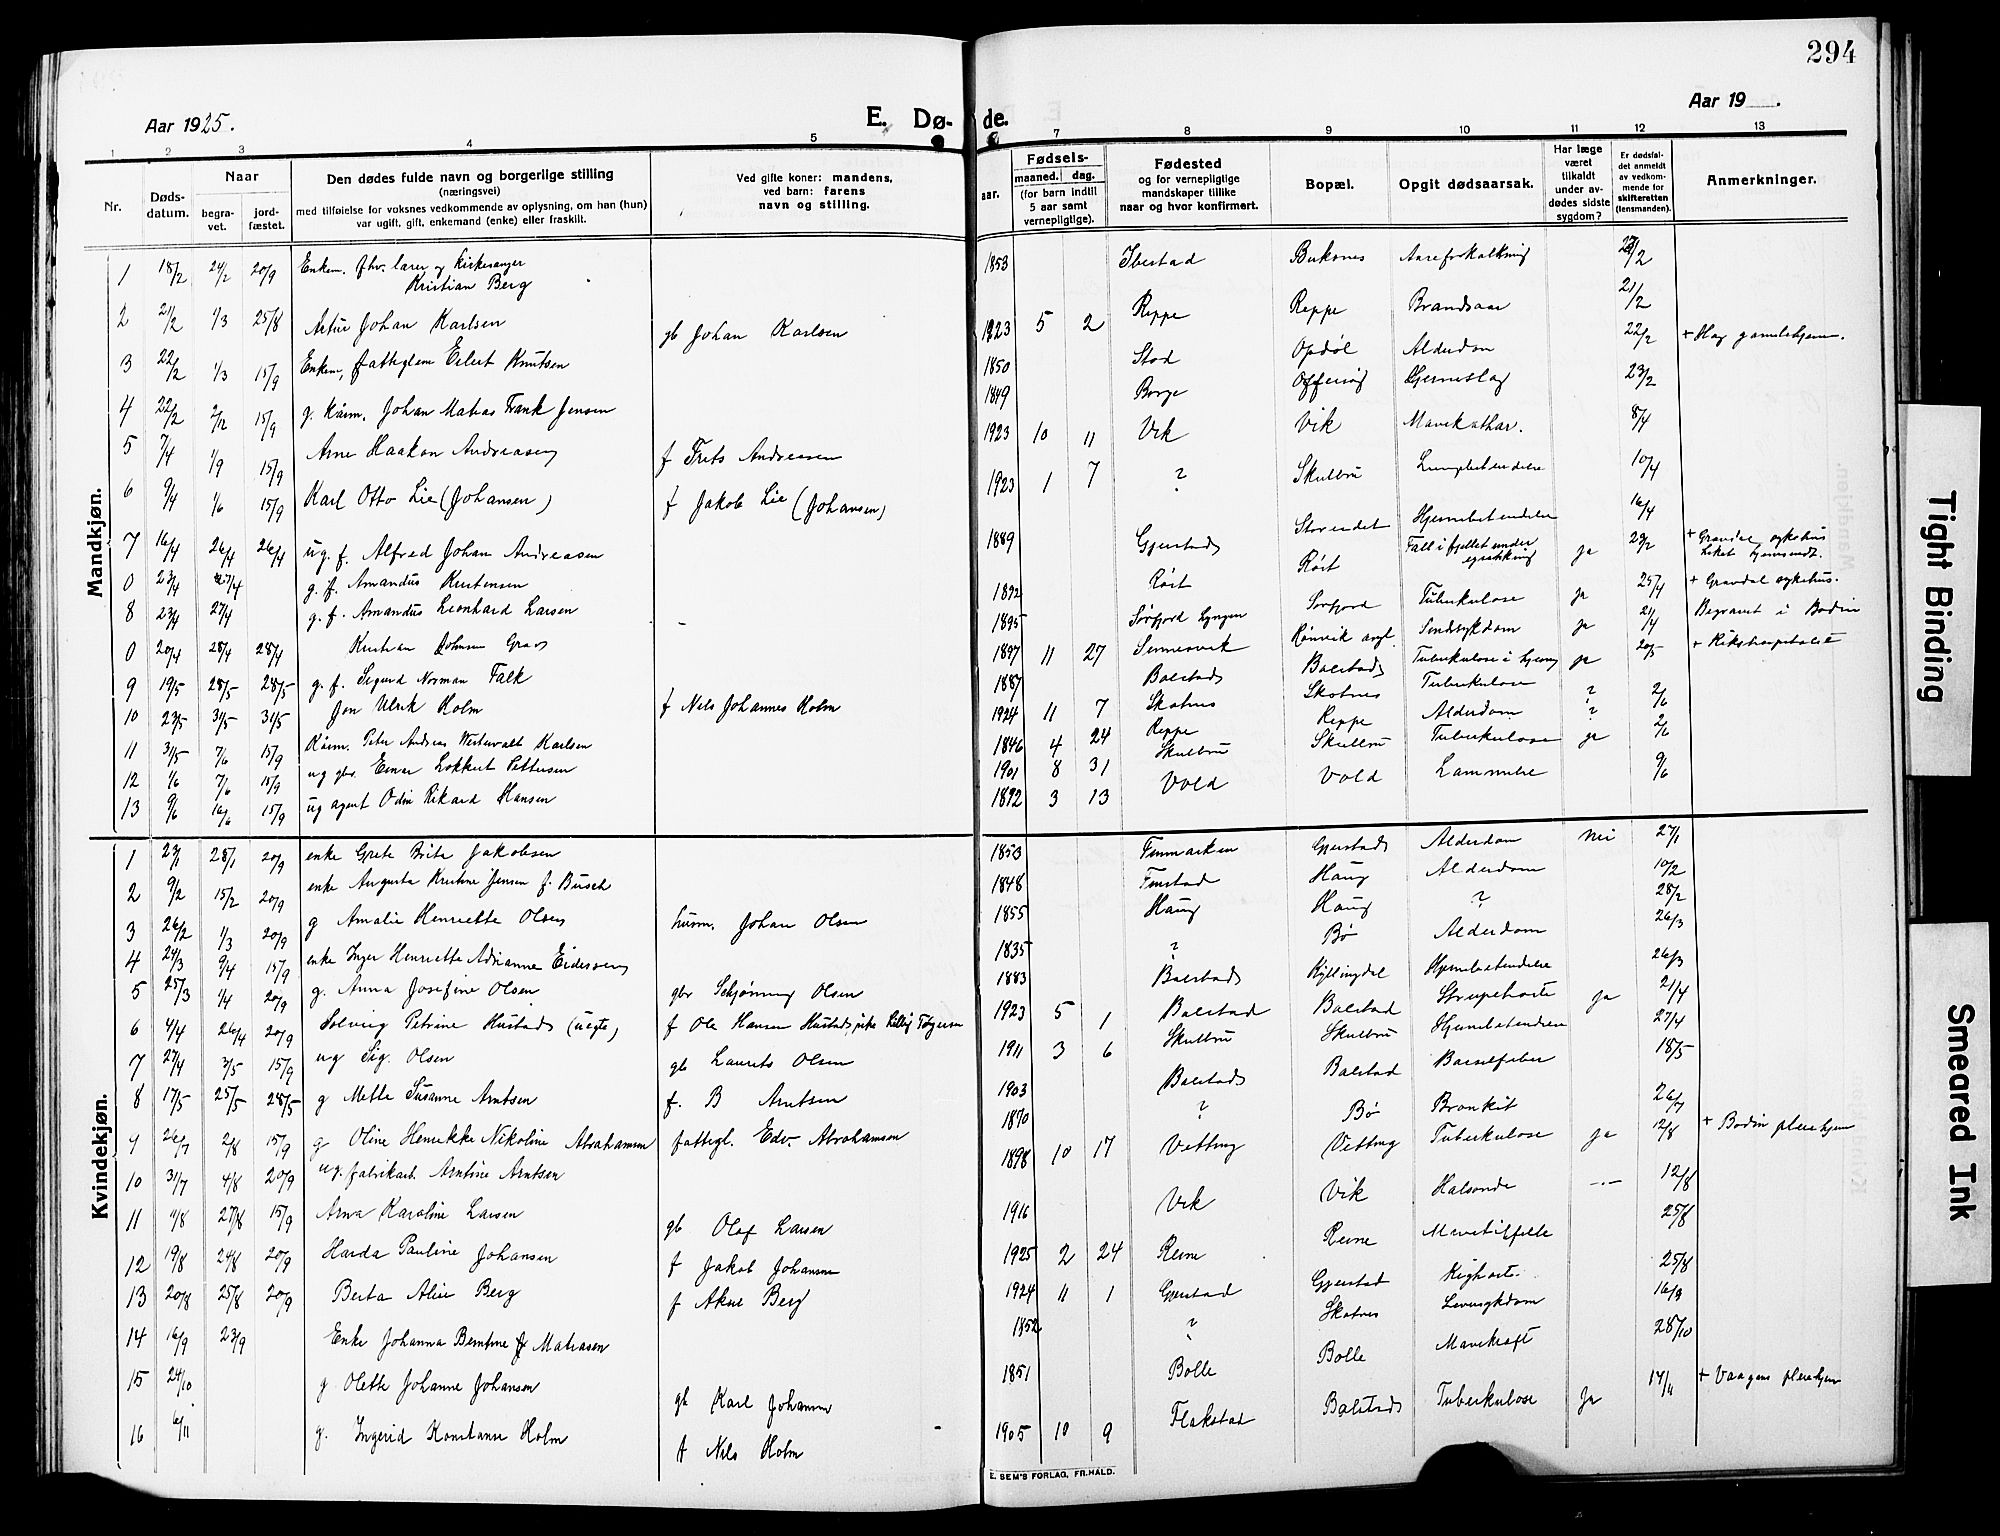 294
Aar 1925.
E. Dø- de.
Aar 19 .
1 2 3 4 5 6 7 8 9 10 11 12 13
Nr.
Døds-datum.
Naar
begra-vet.
jord-fæstet.
Den dødes fulde navn og borgerlige stilling
(næringsvei)
med tilføielse for voksnes vedkommende av oplysning, om han (hun)
var ugift, gift, enkemand (enke) eller fraskilt.
Ved gifte koner: mandens,
ved barn: farens
navn og stilling.
aar.
Fødsels-
maaned. dag.
(for barn indtil
5 aar samt
vernepligtige).
Fødested
og for vernepligtige
mandskaper tillike
naar og hvor konfirmert.
Bopæl.
Opgit dødsaarsak.
Har læge
været
tilkaldt
under av-
dødes sidste
sygdom?
Er dødsfal-
det anmeldt
av vedkom-
mende for
skifteretten
(lensmanden).
Anmerkninger.
Mandkjøn.
1 18/2 24/2 20/9 Enkem. fhv. lærer og kirkesanger Kristian Berg 1853 Ibestad Buksnes Aareforkalkning
2 21/2 1/3 25/8 Artur Johan Karlsen gb Johan Karlsen 1923 5 2 Reppe Reppe Brandsaar 21/2
3 22/2 1/3 15/9 Enkem, fattiglem Eilert Knutsen 1850 Stod Opdøl Alderdom 22/2 + Hag gamlehjem.
4 22/2 2/12 15/9 g. Kårm. Johan Matias Frank Jensen 1849 Borge Offersøy Hjerneslag 23/2
5 7/4 1/9 15/9 Arne Haakon Andreasen f Frets Andreasen 1923 10 11 Vik Vik Mavekathar. 8/4
6 9/4 1/6 15/9 Karl Otto Lie (Johansen) f Jakob Lie (Johansen) 1923 1 7 ? Skulbru Lungebetendelse 10/4
7 16/4 26/4 26/4 ug. f. Alfred Johan Andreasen 1889 Gjerstad Storeidet Hjernebetendelse 16/4
0 23/4 g. f. Amandus Kristensen 1892 Røst Røst Fald i fjeldet under eggsanking ja + Gravdal sykehus Liket hjemsendt.
8 23/4 27/4 g. f. Amandus Leonhard Larsen 1895 Sørfjord Lyngen Sørfjord Tuberkulose ja 25/4 + Gravdal sykehus.
0 20/4 28/4 28/4 Kristian Johnsen Grav 1897 11 27 Sennesvik Rønvik asyl Sindssykdom ja 21/4 Begravet i Bodin
9 19/5 28/5 28/5 g. f. Sigurd Norman Falk 1887 Balstad Balstad Tuberkulose i hjerne ja 20/5 + Rikshospitalet
10 23/5 31/5 31/5 Jon Ulrik Holm f Nils Johannes Holm 1924 11 7 Skotnes Skotnes Tuberkulose ? 2/6
11 31/5 7/6 15/9 Kårm. Peter Andreas Westervalt Karlsen 1846 4 24 Reppe Reppe Alderdom ? 2/6
12 1/6 7/6 15/9 ug gbr. Einar Lokkert Pettersen 1901 8 31 Skulbru Skulbru Tuberkulose ja
13 9/6 16/6 15/9 ug agent Odin Rikard Hansen 1892 3 13 Vold Vold Lammelse 9/6
Kvindekjøn.
1 23/1 28/1 20/9 enke Grete Brita Jakobsen 1853 Finmarken Gjerstad Alderdom nei 27/1
2 9/2 15/2 20/9 enke Augusta Kristine Jensen f. Busch 1848 Finstad Haug Alderdom 10/2
3 26/2 1/3 20/9 g Amalie Henriette Olsen husm. Johan Olsen 1855 Haug Haug ? 28/2
4 24/3 9/4 15/9 enke Inger Henriette Adrianne Eidesen 1835 ? Bø Alderdom 26/3
5 25/3 1/4 20/9 g. Anna Josefine Olsen gbr Schjønning Olsen 1883 Balstad Kyllingdal Hjernebetendelse 26/3
6 4/4 26/4 20/9 Solveig Petrine Hustad (uegte) f Ole Hansen Hustad, pike 1923 5 1 Balstad Balstad Strupehoste ja 21/4
7 27/4 3/5 15/9 ug Sig. Olsen gb Laurits Olsen 1911 3 6 Skulbru Skulbru Hjernebetendelse 27/4
8 17/5 25/5 28/5 g Mette Susanne Arntsen f. B Arntsen 1903 Balstad Balstad Barselfeber 18/5
9 26/7 2/8 15/9 g Oline Henrikke Nikoline Abrahamsen fattigl. Edv. Abrahamsen 1870 ? Bø Bronkit 26/7
10 31/7 4/8 20/9 ug. fabrikarb. Arntine Arntsen 1898 10 17 Vetting Vetting Tuberkulose ja 12/8 + Bodin pleiehjem
11 4/8 27/8 15/9 Arna Karoline Larsen gb Olaf Larsen 1916 Vik Vik Halsonde -.- 12/8
12 19/8 24/8 20/9 Harda Pauline Johansen f Jakob Johansen 1925 2 24 Reine Reine Mavetilfelle 25/8
13 20/8 25/8 20/9 Berta Aline Berg f Aksel Berg 1924 11 1 Gjerstad Gjerstad Kighoste 25/8
14 16/9 23/9 Enke Johanna Berntine Matiasen 1852 ? Skotnes Leversykdom 16/9
15 24/10 g. Olette Johanne Johansen gb Karl Johansen 1851 Bolle Bolle Mavekraft 28/10
16 6/11 g. Ingerid Konstanse Holm f Nils Holm 1905 10 9 Flakstad Balstad Tuberkulose Ja 17/11 + Vaagans pleiehjem
E. SEM'S FORLAG, FR.HALD.
Tight Binding
Smeared Ink